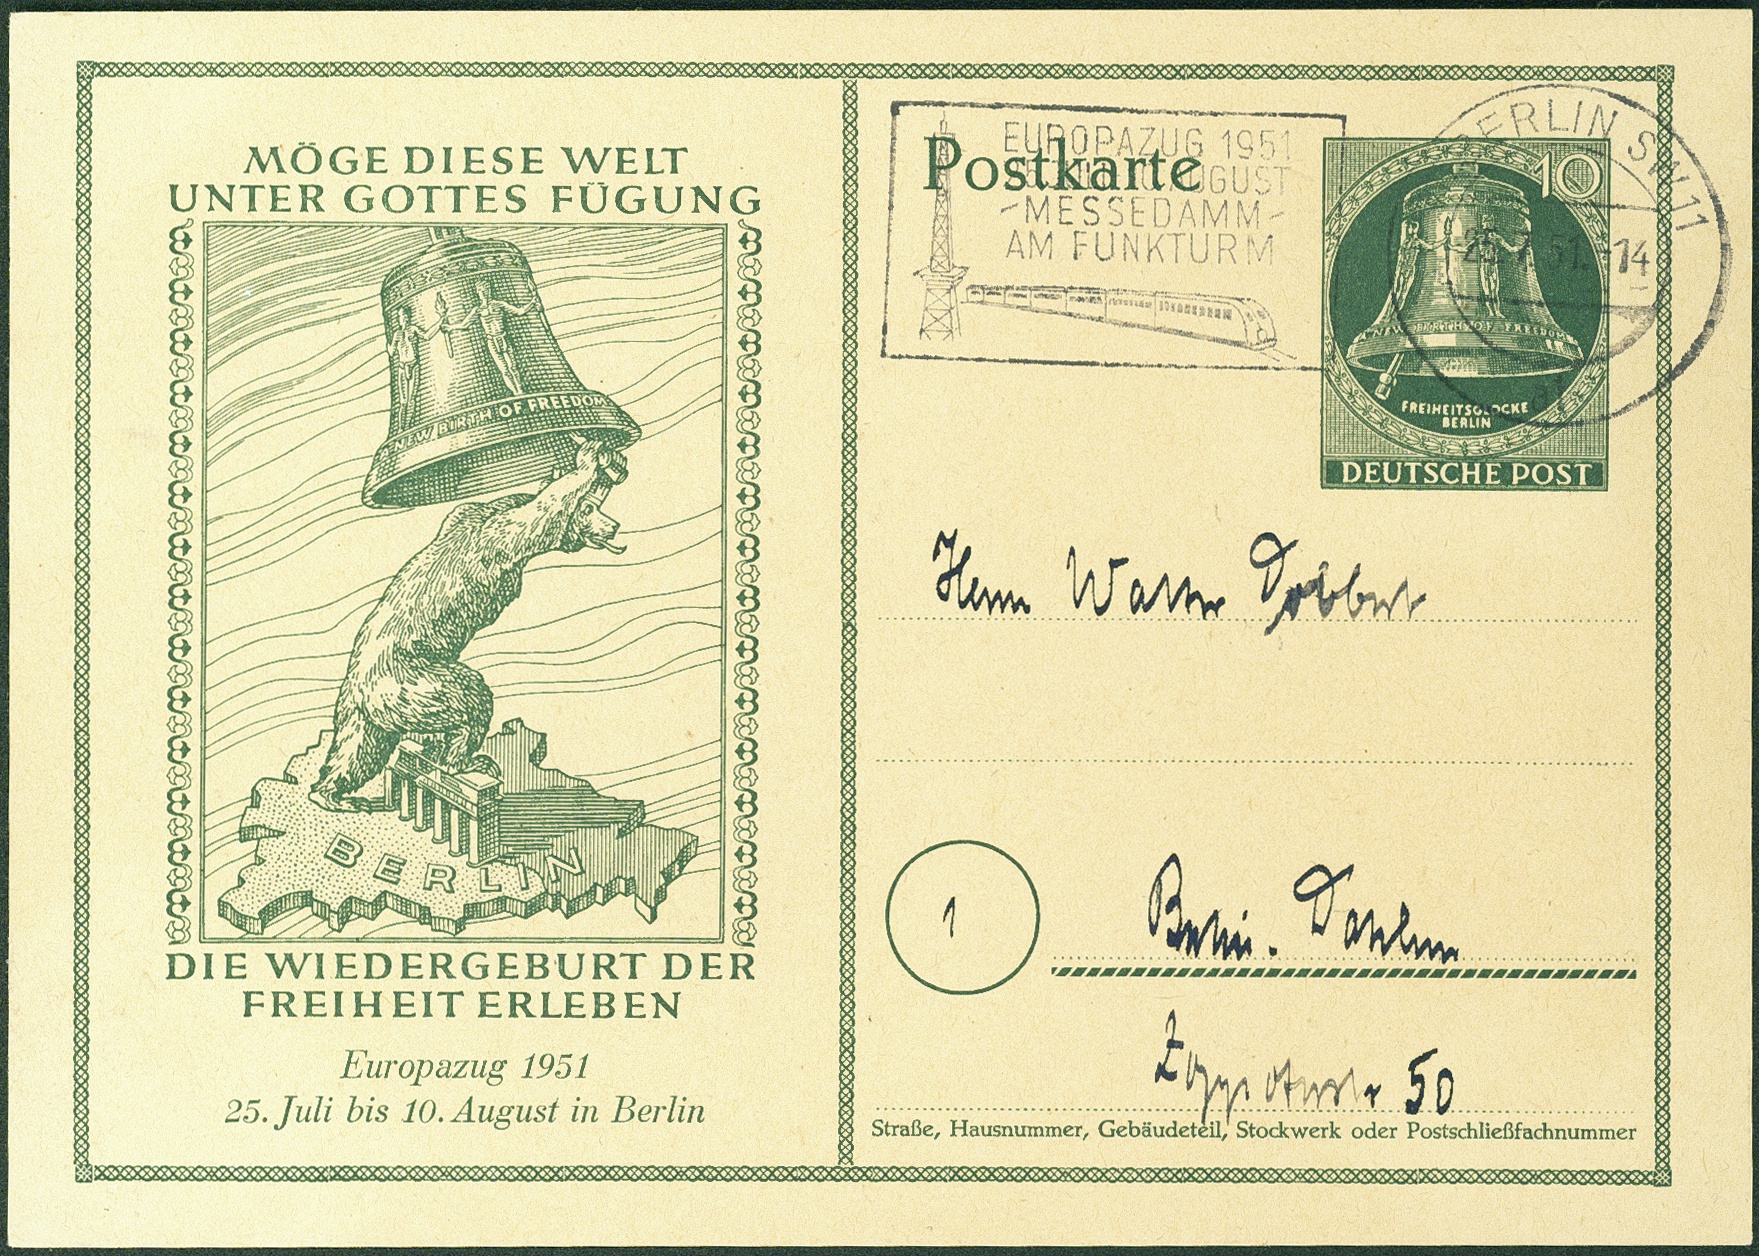 MÖGE DIESE WELT
UNTER GOTTES FÜGUNG
NEW BIRTH OF FREEDOM
BERLIN
DIE WIEDERGEBURT DER
FREIHEIT ERLEBEN
Europazug 1951
25. Juli bis 10. August in Berlin
Postkarte
EUROPAZUG 1951
AUGUST
-MESSEDAMM-
AM FUNKTURM
BERLIN SW 11
25.7.51.-14
10
NEW BIRTH OF FREEDOM
FREIHEITSGLOCKE
BERLIN
DEUTSCHE POST
Herrn Walter Dobbert
1
Berlin-Dahlem
50
Straße, Hausnummer, Gebäudeteil, Stockwerk oder Postschließfachnummer